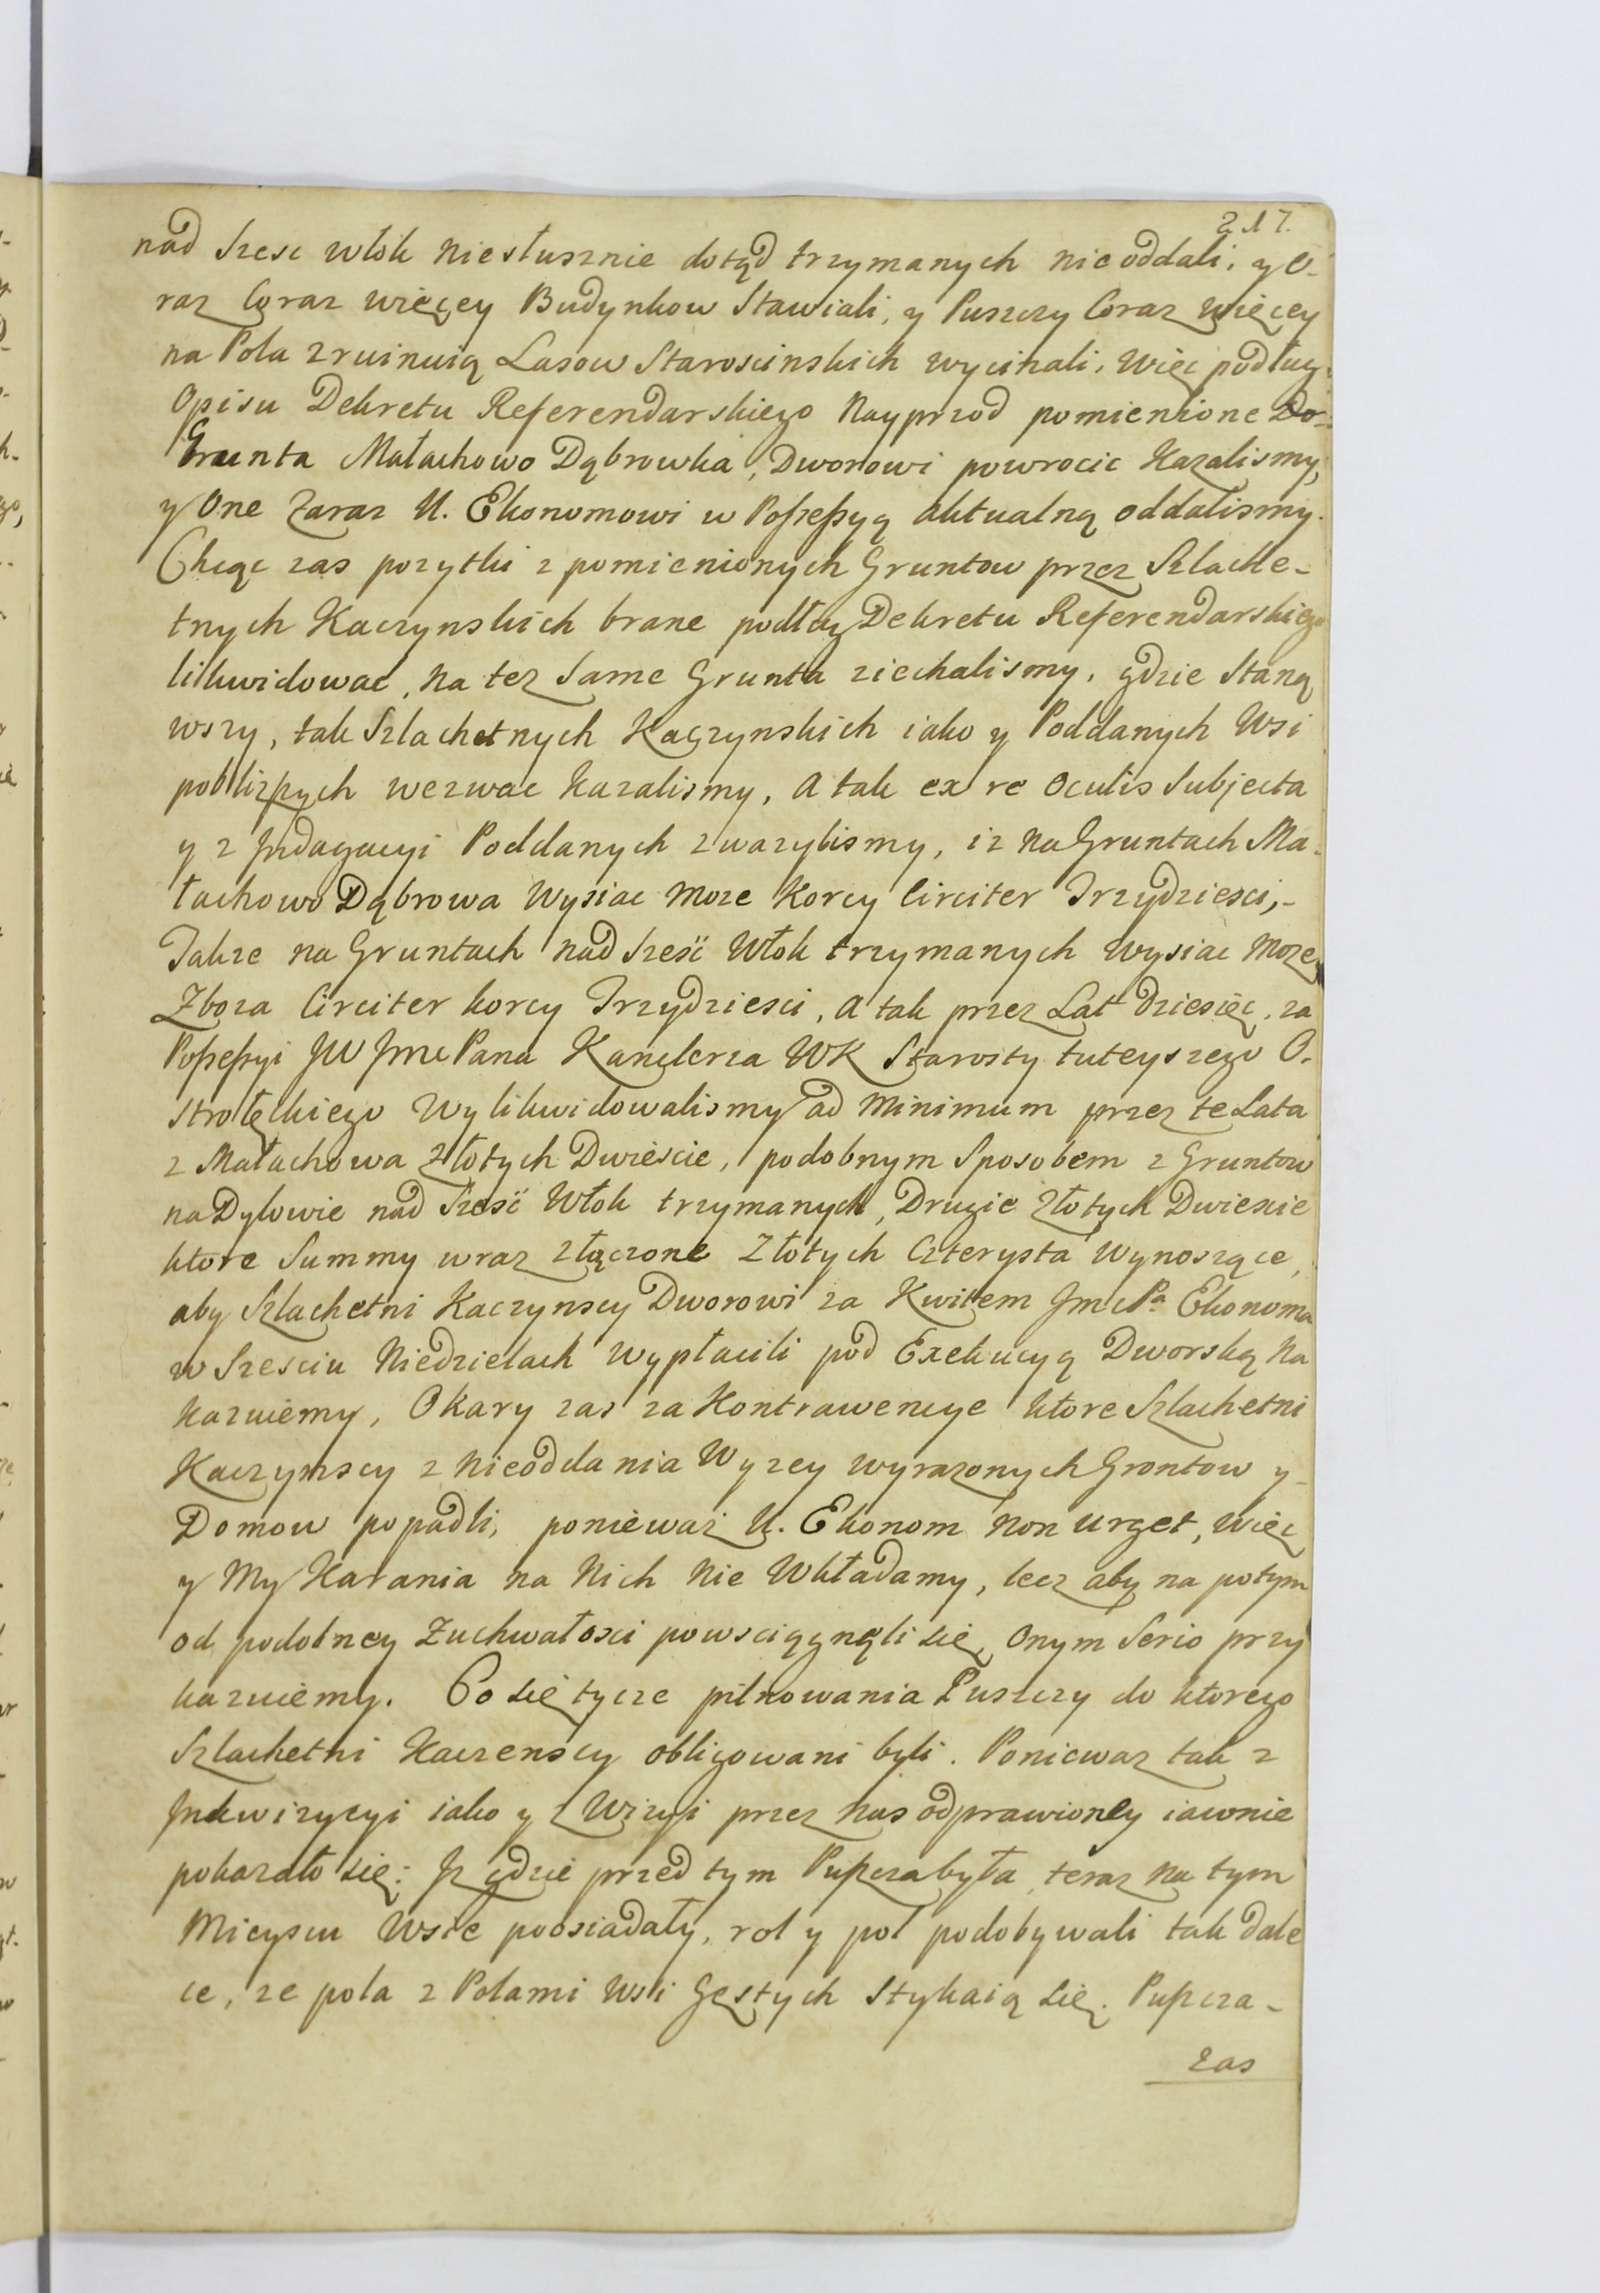 217.
nad Szesc włok niesłusznie dotąd trzymanych nieoddali, y o-
raz Coraz więcey Budynkow Stawiali, y Puszczy Coraz więcey
na Pola z ruinuią Lasow Staroscinskich wycinali, Więc podług
Opisu Dekretu Referendarskiego Nayprzod pomienione Do-
Grunta Małachowo Dąbrowka, Dworowi powrocic Kazalismy,
y One Zaraz U. Ekonomowi w Possessyą aktualną oddalismy.
Chcąc zas pozytki z pomienionych Gruntow przez Szlache-
tnych Kaczynskich brane podług Dekretu Referendarskiego
likwidować, na tez Same Grunta ziechalismy, gdzie Staną
wszy, tak Szlachetnych Kaczynskich iako y Poddanych Wsi
poblizszych wezwac kazalismy, a tak ex re oculis Subjecta
y z Jndagacyi Poddanych zwazylismy, iz na Gruntach Ma-
łachowo Dąbrowa Wysiac moze Korcy Circiter Trzydziesci,-
Takze na Gruntach nad Sześć Włok trzymanych Wysiac Moze
Zboza Circiter korcy Trzydziesci, a tak przez Lat Dziesięc, za
Possessyi JW Jmc Pana Kanclerza WK Starosty tuteyszego O-
strołęckiego Wylikwidowalismy ad minimum przez te Lata
z Małachowa Złotych Dwieście, podobnym Sposobem z Gruntow
na Dylowie nad Sześć Włok trzymanych, Drugie Złotych Dwiescie
ktore Summy wraz złączone Złotych Czterysta Wynoszące,
aby Szlachetni Kaczynscy Dworowi za Kwitem Jmc Pa Ekonoma
w Szesciu Niedzielach Wypłacili pod Exekucyą Dworską Na
kazuiemy, O kary zas za Kontrawencye ktore Szlachetni
Kaczynscy z nieoddania Wyzey wyrazonych Grontow y-
Domow popadli, poniewaź U. Ekonom non urget, więc
y My Karania na Nich Nie Wkładamy, lecz aby na potym
od podobney Zuchwałosci powsciągnęli się, Onym Serio przy
kazuiemy. Co się tycze pilnowania Puszczy do ktorego
Szlachetni Kaczenscy obligowani byli. Poniewaz tak z
Jnkwizycyi iako y z Wizyi przez nas odprawioney iawnie
pokazało się: Jz gdzie przed tym Puszcza była, teraz na tym
Mieyscu Wsie poosiadały, rol y pol podobywali tak dale
ce, ze pola z Polami Wsi Gęstych Stykaią się. Puszcza-
zas